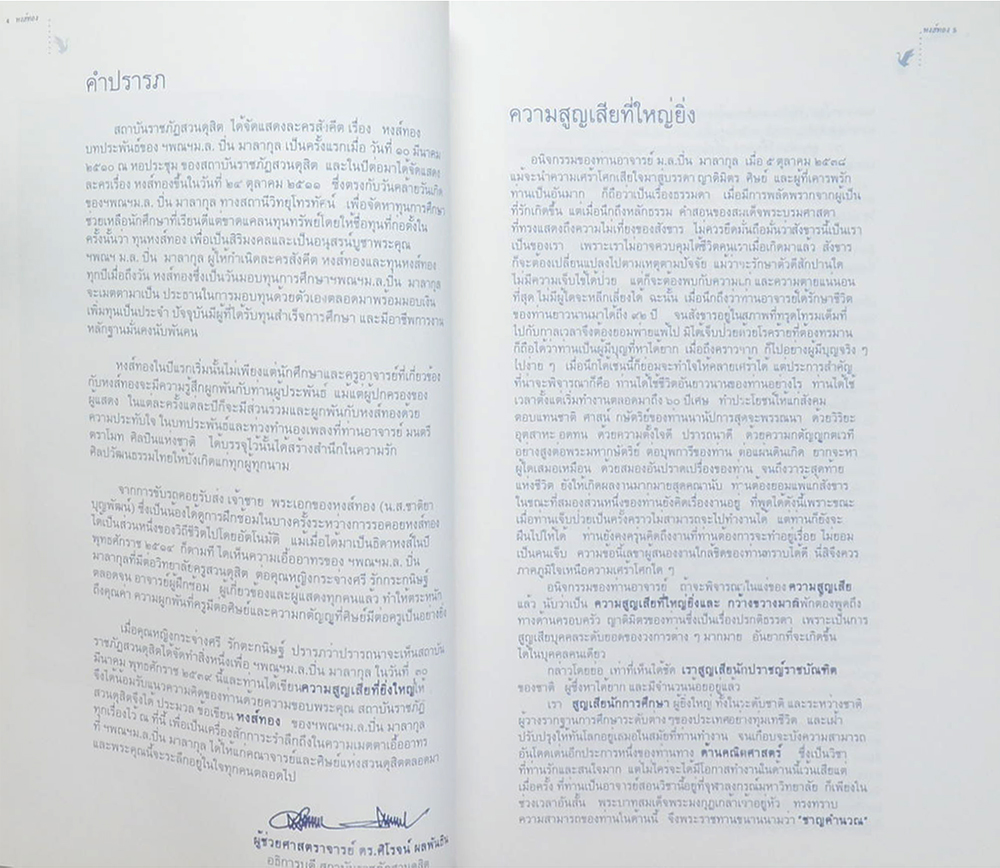 4 หงส์ทอง
คำปรารภ
สถาบันราชภัฏสวนดุสิต ได้จัดแสดงละครสังคีต เรื่อง หงส์ทอง
บทประพันธ์ของ ฯพณฯม.ล. ปิ่น มาลากุล เป็นครั้งแรกเมื่อ วันที่ ๑๐ มีนาคม
๒๕๑๐ ณ หอประชุม ของสถาบันราชภัฏสวนดุสิต และในปีต่อมาได้จัดแสดง
ละครเรื่อง หงส์ทองขึ้นในวันที่ ๒๔ ตุลาคม ๒๕๑๑ ซึ่งตรงกับวันคล้ายวันเกิด
ของฯพณฯม.ล. ปิ่น มาลากุล ทางสถานีวิทยุโทรทัศน์ เพื่อจัดหาทุนการศึกษา
ช่วยเหลือนักศึกษาที่เรียนดีแต่ขาดแคลนทุนทรัพย์โดยให้ชื่อทุนที่ก่อตั้งใน
ครั้งนั้นว่า ทุนหงส์ทอง เพื่อเป็นสิริมงคลและเป็นอนุสรณ์บูชาพระคุณ
ฯพณฯ ม.ล. ปิ่น มาลากุล ผู้ให้กำเนิดละครสังคีต หงส์ทองและทุนหงส์ทอง
ทุกปีเมื่อถึงวัน หงส์ทองซึ่งเป็นวันมอบทุนการศึกษาฯพณฯม.ล. ปิ่น มาลากุล
จะเมตตามาเป็น ประธานในการมอบทุนด้วยตัวเองตลอดมาพร้อมมอบเงิน
เพิ่มทุนเป็นประจำ ปัจจุบันมีผู้ที่ได้รับทุนสำเร็จการศึกษา และมีอาชีพการงาน
หลักฐานมั่นคงนับพันคน
หงส์ทองในปีแรกเริ่มนั้นไม่เพียงแต่นักศึกษาและครูอาจารย์ที่เกี่ยวข้อง
กับหงส์ทองจะมีความรู้สึกผูกพันกับท่านผู้ประพันธ์ แม้แต่ผู้ปกครองของ
ผู้แสดง ในแต่ละครั้งแต่ละปีก็จะมีส่วนร่วมและผูกพันกับหงส์ทองด้วย
ความประทับใจ ในบทประพันธ์และท่วงทำนองเพลงที่ท่านอาจารย์ มนตรี
ตราโมท ศิลปินแห่งชาติ ได้บรรจุไว้นั้นได้สร้างสำนึกในความรัก
ศิลปวัฒนธรรมไทยให้บังเกิดแก่ทุกผู้ทุกนาม
จากการขับรถคอยรับส่ง เจ้าชาย พระเอกของหงส์ทอง (น.ส.ชาติยา
บุญพัฒน์) ซึ่งเป็นน้องได้ดูการฝึกซ้อม ในบางครั้งระหว่างการรอคอยหงส์ทอง
ได้เป็นส่วนหนึ่งของวิถีชีวิตไปโดยอัตโนมัติ แม้เมื่อได้มาเป็นธิดาหงส์ในปี
พุทธศักราช ๒๕๑๔ ก็ตามที ได้เห็นความเอื้ออาทรของ ฯพณฯม.ล. ปิ่น
มาลากุลที่มีต่อวิทยาลัยครูสวนดุสิต ต่อคุณหญิงกระจ่างศรี รักตะกนิษฐ์
ตลอดจน อาจารย์ผู้ฝึกซ้อม ผู้เกี่ยวข้องและผู้แสดงทุกคนแล้ว ทำให้ตระหนัก
ถึงคุณค่า ความผูกพันที่ครูมีต่อศิษย์และความกตัญญูที่ศิษย์มีต่อครูเป็นอย่างยิ่ง
เมื่อคุณหญิงกระจ่างศรี รักตะกนิษฐ์ ปรารภว่าปรารถนาจะเห็นสถาบัน
ราชภัฏสวนดุสิตได้จัดทำสิ่งหนึ่งเพื่อ ฯพณฯม.ล.ปิ่น มาลากุล ในวันที่ ๓๐
มีนาคม พุทธศักราช ๒๕๓๙ นี้และท่านได้เขียนความสูญเสียที่ยิ่งใหญ่ให้
จึงได้น้อมรับแนวความคิดของท่านด้วยความขอบพระคุณ สถาบันราชภัฏ
สวนดุสิตจึงได้ ประมวล ข้อเขียน หงส์ทอง ของฯพณฯม.ล. ปิ่น มาลากุล
ทุกเรื่องไว้ ณ ที่นี้ เพื่อเป็นเครื่องสักการะรำลึกถึงในความเมตตาเอื้ออาทร
ที่ ฯพณฯม.ล.ปิ่น มาลากุล ได้ให้แก่คณาจารย์และศิษย์แห่งสวนดุสิตตลอดมา
และพระคุณนี้จะระลึกอยู่ในใจทุกคนตลอดไป
ผู้ช่วยศาสตราจารย์ ดร.ศิโรจน์ ผลพันธิน
อธิการบดี สถาบันราชภัฏสวนดุสิต
หงส์ทอง 5
ความสูญเสียที่ใหญ่ยิ่ง
อนิจกรรมของท่านอาจารย์ ม.ล.ปิ่น มาลากุล เมื่อ ๕ ตุลาคม ๒๕๓๘
แม้จะนำความเศร้าโศกเสียใจมาสู่บรรดา ญาติมิตร ศิษย์ และผู้ที่เคารพรัก
ท่านเป็นอันมาก ก็ถือว่าเป็นเรื่องธรรมดา เมื่อมีการพลัดพรากจากผู้เป็น
ที่รักเกิดขึ้น แต่เมื่อนึกถึงหลักธรรม คำสอนของสมเด็จพระบรมศาสดา
ที่ทรงแสดงถึงความไม่เที่ยงของสังขาร ไม่ควรยึดมั่นถือมั่นว่าสังขารนี้เป็นเรา
เป็นของเรา เพราะเราไม่อาจควบคุมได้ชีวิตคนเราเมื่อเกิดมาแล้ว สังขาร
ก็จะต้องเปลี่ยนแปลงไปตามเหตุตามปัจจัย แม้ว่าจะรักษาตัวดีสักปานใด
ไม่มีความเจ็บไข้ได้ป่วย แต่ก็จะต้องพบกับความแก่ และความตายแน่นอน
ที่สุด ไม่มีผู้ใดจะหลีกเลี่ยงได้ ฉะนั้น เมื่อนึกถึงว่าท่านอาจารย์ได้รักษาชีวิต
ของท่านยาวนานมาได้ถึง ๙๒ ปี จนสังขารอยู่ในสภาพที่ทรุดโทรมเต็มที่
ไปกับกาลเวลาจึงต้องยอมพ่ายแพ้ไป มิได้เจ็บป่วยด้วยโรคร้ายที่ต้องทรมาน
ก็ถือได้ว่าท่านเป็นผู้มีบุญที่หาได้ยาก เมื่อถึงคราวจาก ก็ไปอย่างผู้มีบุญจริง ๆ
ไปง่าย ๆ เมื่อนึกได้เช่นนี้ก็ย่อมจะทำใจให้คลายเศร้าได้ แต่ประการสำคัญ
ที่น่าจะพิจารณาก็คือ ท่านได้ใช้ชีวิตอันยาวนานของท่านอย่างไร ท่านได้ใช้
เวลาตั้งแต่เริ่มทำงานตลอดมาถึง ๖๐ ปีเศษ ทำประโยชน์ให้แก่สังคม
ตอบแทนชาติ ศาสน์ กษัตริย์ของท่านนานัปการสุดจะพรรณนา ด้วยวิริยะ
อุตสาหะ อดทน ด้วยความตั้งใจดี ปรารถนาดี ด้วยความกตัญญูกตเวที
อย่างสูงต่อพระมหากษัตริย์ ต่อบุพการีของท่าน ต่อแผ่นดินเกิด ยากจะหา
ผู้ใดเสมอเหมือน ด้วยสมองอันปราดเปรื่องของท่าน จนถึงวาระสุดท้าย
แห่งชีวิต ยังให้เกิดผลงานมากมายสุดคณานับ ท่านต้องยอมแพ้แก่สังขาร
ในขณะที่สมองส่วนหนึ่งของท่านยังคิดเรื่องงานอยู่ ที่พูดได้ดังนี้เพราะขณะ
เมื่อท่านเจ็บป่วยเป็นครั้งคราวไม่สามารถจะไปทำงานได้ แต่ท่านก็ยังจะ
ฝืนไปให้ได้ ท่านยังคงครุ่นคิดถึงงานที่ท่านต้องการจะทำอยู่เรื่อย ไม่ยอม
เป็นคนเจ็บ ความข้อนี้เลขาผู้สนองงานใกล้ชิดของท่านทราบได้ดี นี่สิจึงควร
ภาคภูมิใจเหนือความเศร้าโศกใด ๆ
อนิจกรรมของท่านอาจารย์ ถ้าจะพิจารณาในแง่ของ ความสูญเสีย
แล้ว นับว่าเป็น ความสูญเสียที่ใหญ่ยิ่งและ กว้างขวางมากมิพักต้องพูดถึง
ทางด้านครอบครัว ญาติมิตรของท่านซึ่งเป็นเรื่องปรกติธรรมดา เพราะเป็นการ
สูญเสียบุคคลระดับยอดของวงการต่าง ๆ มากมาย อันยากที่จะเกิดขึ้น
ได้ในบุคคลคนเดียว
กล่าวโดยย่อ เท่าที่เห็นได้ชัด เราสูญเสียนักปราชญ์ราชบัณฑิต
ของชาติ ผู้ซึ่งหาได้ยาก และมีจำนวนน้อยอยู่แล้ว
เรา สูญเสียนักการศึกษา ผู้ยิ่งใหญ่ ทั้งในระดับชาติ และระหว่างชาติ
ผู้วางรากฐานการศึกษาระดับต่างๆของประเทศอย่างทุ่มเทชีวิต และเฝ้า
ปรับปรุงให้ทันโลกอยู่เสมอในสมัยที่ท่านทำงาน จนเกือบจะบังความสามารถ
อันโดดเด่นอีกประการหนึ่งของท่านทาง ด้านคณิตศาสตร์ ซึ่งเป็นวิชา
ที่ท่านรักและสนใจมาก แต่ไม่ใคร่จะได้มีโอกาสทำงานในด้านนี้เว้นเสียแต่
เมื่อครั้ง ที่ท่านเป็นอาจารย์สอนวิชานี้อยู่ที่จุฬาลงกรณ์มหาวิทยาลัย ก็เพียงใน
ช่วงเวลาอันสั้น พระบาทสมเด็จพระมงกุฎเกล้าเจ้าอยู่หัว ทรงทราบ
ความสามารถของท่านในด้านนี้ จึงพระราชทานขนานนามว่า "ชาญคำนวณ"